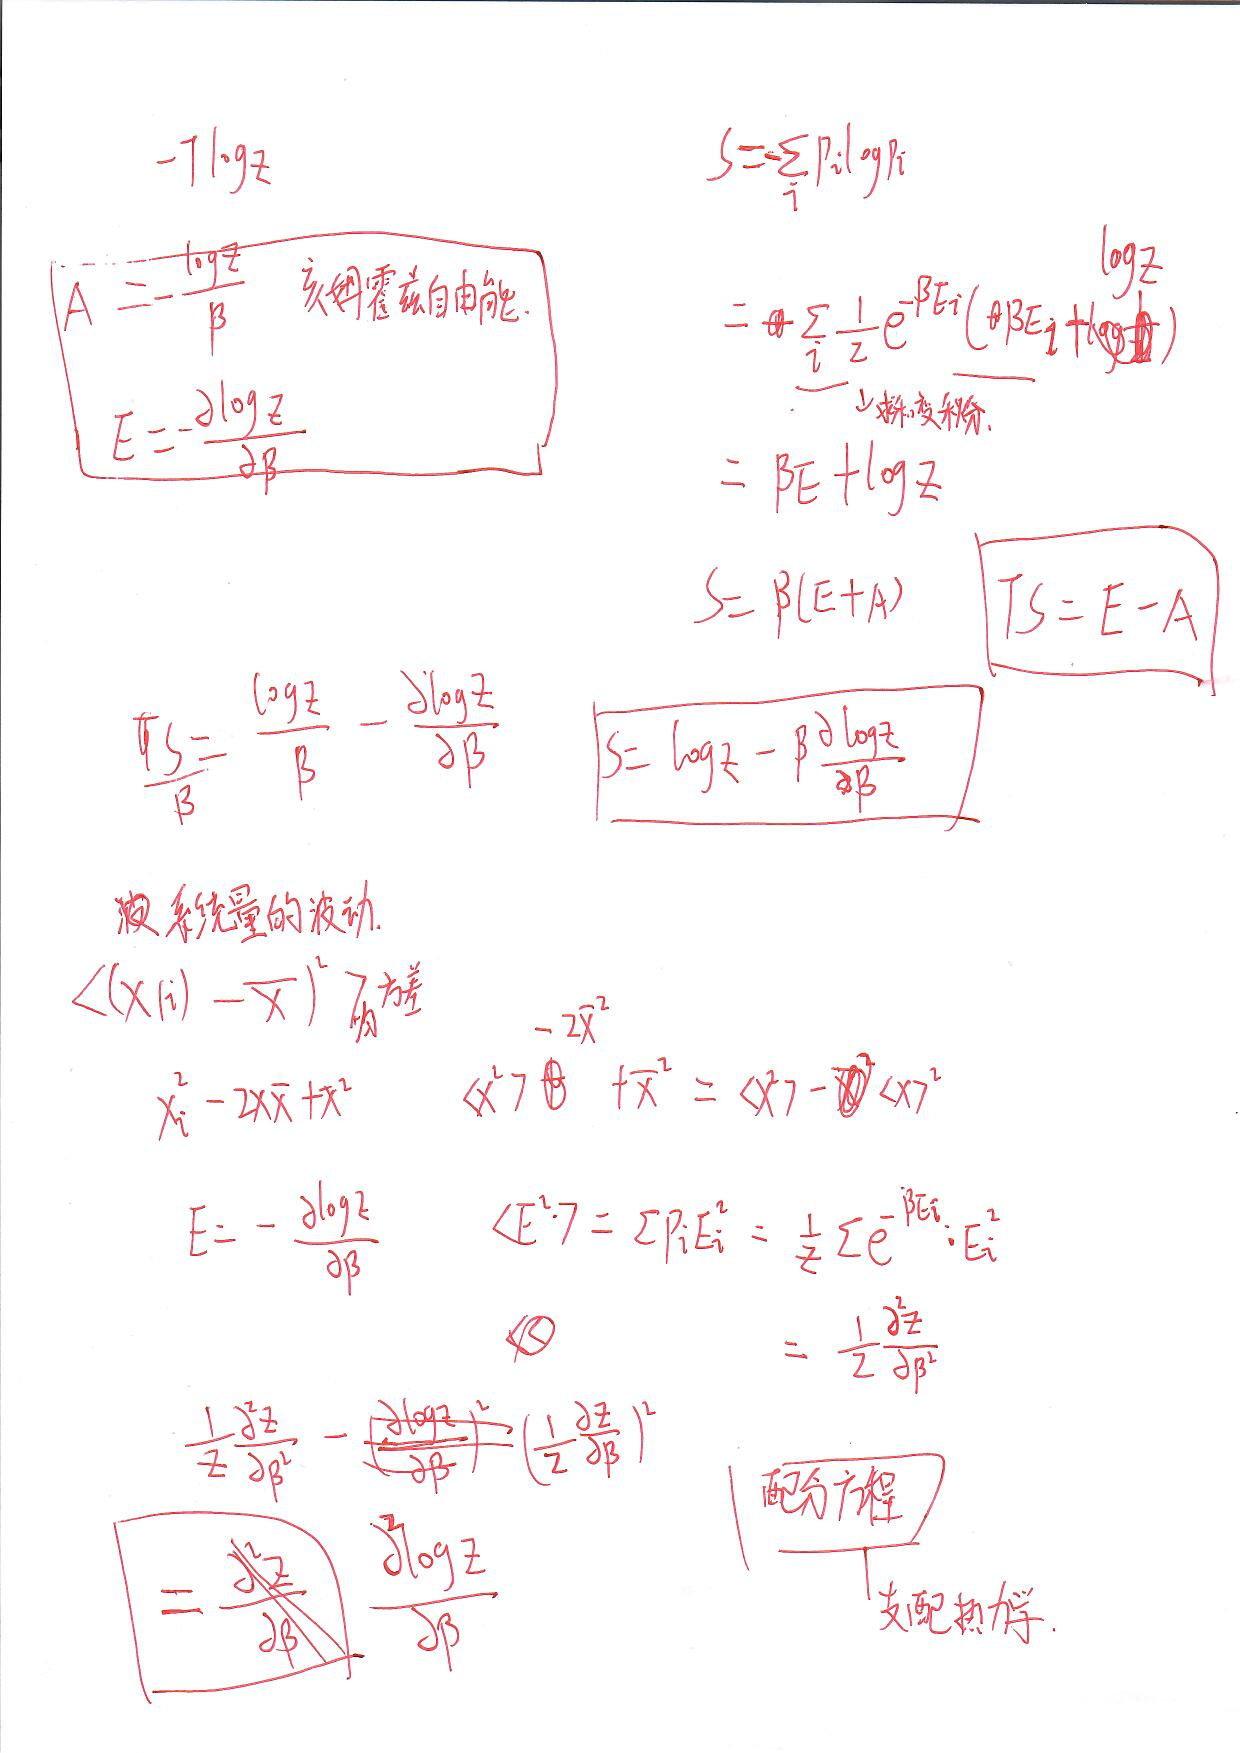 -T log z
A = - log z / β 亥姆霍兹自由能.
E = - ∂log z / ∂β
S = -∑_i p_i log p_i
= ∑_i 1/z e^{-βE_i} (βE_i + log z)
↓ 求和变积分.
= βE + log z
S = β(E+A)
TS = E - A
TS/β = log z / β - ∂log z / ∂β
S = log z - β ∂log z / ∂β
系统量的波动.
<(x(i) - x̄)²> 方差
x_i² - 2x x̄ + x̄²
<x²> - 2x̄² + x̄² = <x²> - <x>²
E = - ∂log z / ∂β
<E²> = Σ P_i E_i² = 1/z Σ e^{-βE_i} · E_i²
= 1/z ∂²z/∂β²
1/z ∂²z/∂β² - (∂log z/∂β)² (1/z ∂z/∂β)²
= ∂²z/∂β ∂²log z/∂β
配分方程
支配热力学.